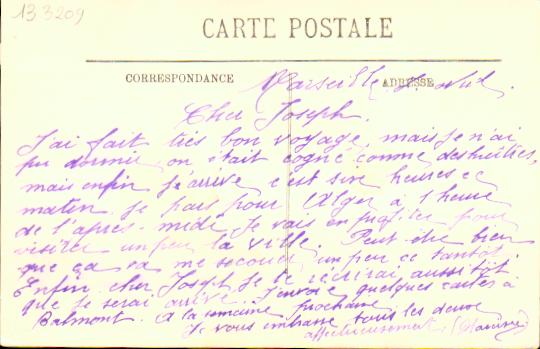 13 3209
CARTE POSTALE
CORRESPONDANCE
ADRESSE
Marseille
Cher Joseph.
J'ai fait très bon voyage, mais je n'ai
pu dormir, on était cogné comme des huîtres,
mais enfin j'arrive c'est six heures ce
matin. Je pars pour Alger à 1 heure
de l'après-midi. Je vais en profiter pour
visiter un peu la ville. Peut-être bien
que ça va me secouer un peu ce tantôt.
Enfin cher Joseph, je te réécrirai aussitôt
que je serai arrivé. J'envoie quelques cartes à
Balmont. A la semaine prochaine,
Je vous embrasse tous les deux
affectueusement